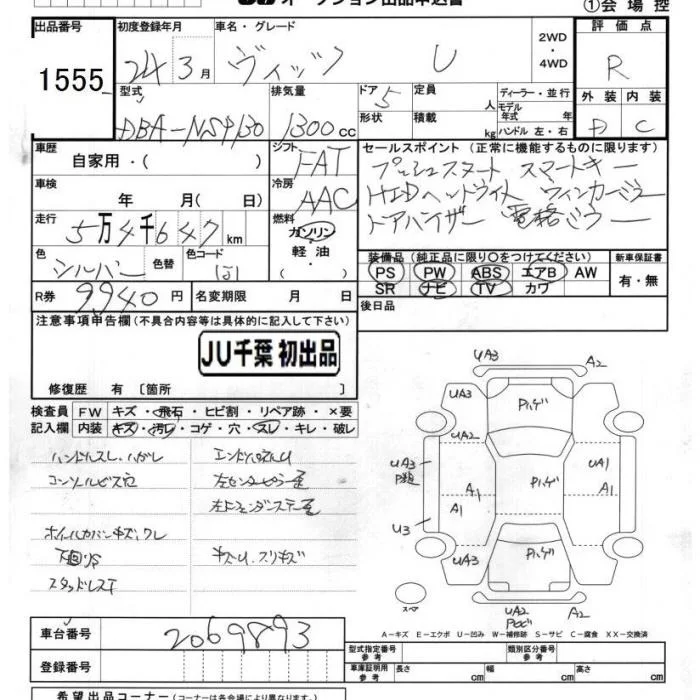 オークション出品申込書
①会場控
出品番号 1555
初度登録年月 24年3月
車名・グレード ヴィッツ U
2WD・4WD
評価点 R
外装 D 内装 C
型式 DBA-NSP130
排気量 1300cc
ドア 5
形状
定員 人
積載 kg
ディーラー・並行
モデル年式 年式
ハンドル 左・右
車歴 自家用・( )
シフト FAT
セールスポイント (正常に機能するものに限ります)
プッシュスタート スマートキー
HIDヘッドライト ウィンカーミラー
ドアバイザー 電格ミラー
車検 年 月( 日)
冷房 AAC
走行 5万4千647km
燃料 ガソリン 軽油 ・( )
色 シルバー 色替 色コード
装備品 (純正品に限り○をつけてください)
PS PW ABS エアB AW
SR ナビ TV カワ
新車保証書 有・無
R券 9940円 名変期限 月 日
後日品
注意事項申告欄 (不具合内容等は具体的に記入して下さい)
JU千葉 初出品
修復歴 有〔箇所 〕
検査員記入欄
FW キズ・飛石・ヒビ割・リペア跡・×要
内装 キズ・汚レ・コゲ・穴・スレ・キレ・破レ
ハンドルスレ・ハガレ
コンソールビス穴
ホイールカバーキズ、ワレ
下回りS
スタッドレスT
左センターピラー歪
キズU、スリキズ
UA3 A2
UA3 A3
UA2
UA3 A1 UA1
A1 A1
U3
UA3 A3
UA2 A2
スペア
A-キズ E-エクボ U-凹み W-補修跡 S-サビ C-腐食 XX-交換済
車台番号 2069893
登録番号
型式指定番号 参考
類別区分番号 参考
車庫証明用 参考 長さ cm 幅 cm 高さ cm
希望出品コーナー (コーナーは各会場により異なります。)